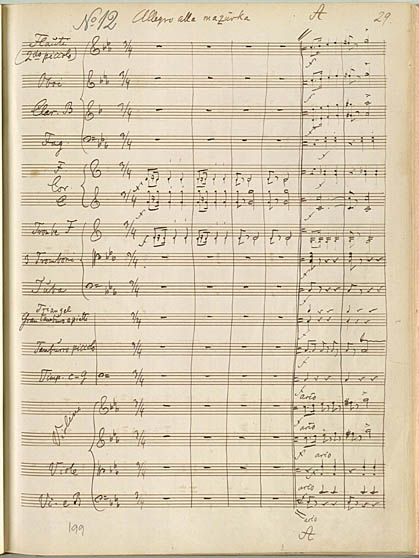 No 12 Allegro alla mazurka A 29.
Flauti
(2do piccolo)
Oboi
Clar. B
Fag.
F
Cor.
C
Trombe F
3 Tromboni
Tuba
Triangel
Gran Tamburo e piatti
Tamburo piccolo
Timp. c-g
Violini
Viole
Vc. e B
arco
arco
arco
arco
arco
A
199